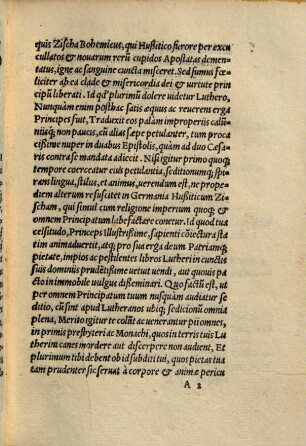 quis Zischa Bohemicus, qui Hussitico furore per excu
cullatos & nouarum rerū cupidos Apostatas demen-
tatus, igne ac sanguine cuncta misceret. Sed sumus fœ-
liciter ab ea clade & misericordia dei & uirtute prin
cipū liberati. Id qđ plurimū dolere uidetur Luthero,
Nunquàm enim posthac satis æquus ac reuerens erga
Principes fuit, Traduxit eos palàm improperijs calū-
nijsq; non paucis, cū alias sæpe petulanter, tum proca
cißime nuper in duabus Epistolis, quàm ad duo Cæsa
ris contra se mandata adiecit. Nisi igitur primo quoq;
tempore coerceatur eius petulantia, seditionumq; spi-
rans lingua, stilus, et animus, uerendum est, ne prope-
diem alterum resuscitet in Germania Hußiticum Zi-
scham, qui simul cum religione imperium quoq; &
omnem Principatum labefactare conetur. Id quod tua
celsitudo, Princeps Illustrißime, sapienti cōiectura sta
tim animaduertit, atq; pro sua erga deum Patriamq;
pietate, impios ac pestilentes libros Lutheri in cunctis
sus dominijs prudētißime uetuit uendi, aut quouis pa
cto in immobile uulgus disseminari. Quo factū est, ut
per omnem Principatum tuum nusquàm audiatur se
ditio, cū sint apud Lutheranos ubiq; sedicionū omnia
plena, Merito igitur te colūt ac venerantur pij omnes,
in primis presbyteri ac Monachi, quos in terris tuis Lu
therini canes mordere aut discerpere non audent, Et
plurimum tibi debent ob id subditi tui, quos pietas tua
tam prudenter sic seruat à corpore & animæ pericu
A 2